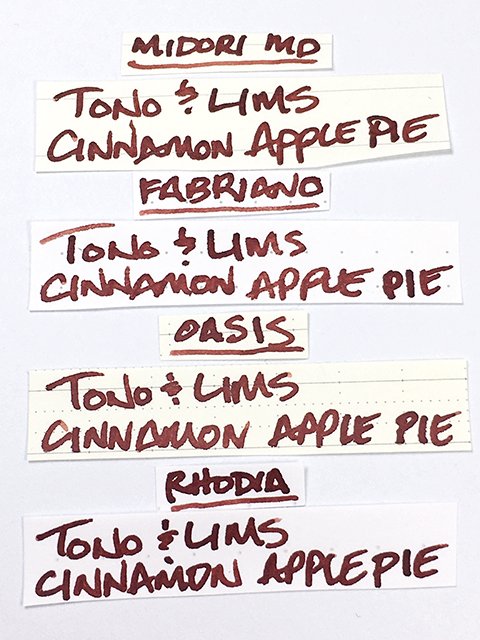 MIDORI MD
TONO & LIMS
CINNAMON APPLE PIE
FABRIANO
TONO & LIMS
CINNAMON APPLE PIE
OASIS
TONO & LIMS
CINNAMON APPLE PIE
RHODIA
TONO & LIMS
CINNAMON APPLE PIE